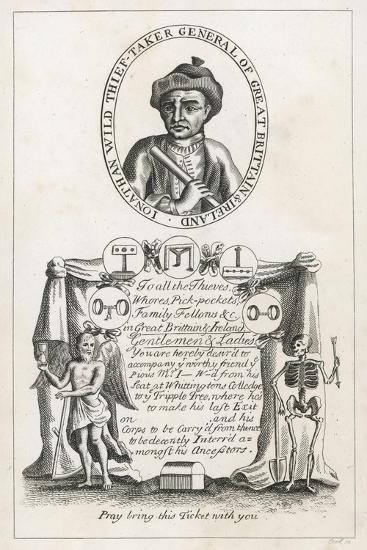 IONATHAN WILD THIEF-TAKER GENERAL OF GREAT BRITTAIN & IRELAND
To all the Thieves,
Whores, Pick-pockets,
Family Fellons &c.
in Great Brittain & Ireland,
Gentlemen & Ladies,
You are hereby desir'd to
accompany yͤ worthy friend yͤ
Pious Mͬ. I— W—d from his
Seat at Whittingtons Colledge
to yͤ Tripple Tree, where he's
to make his last Exit
on , and his
Corps to be Carry'd from thence
to be decently Interr'd a=
mongst his Ancestors.
Pray bring this Ticket with you
Cook sc.